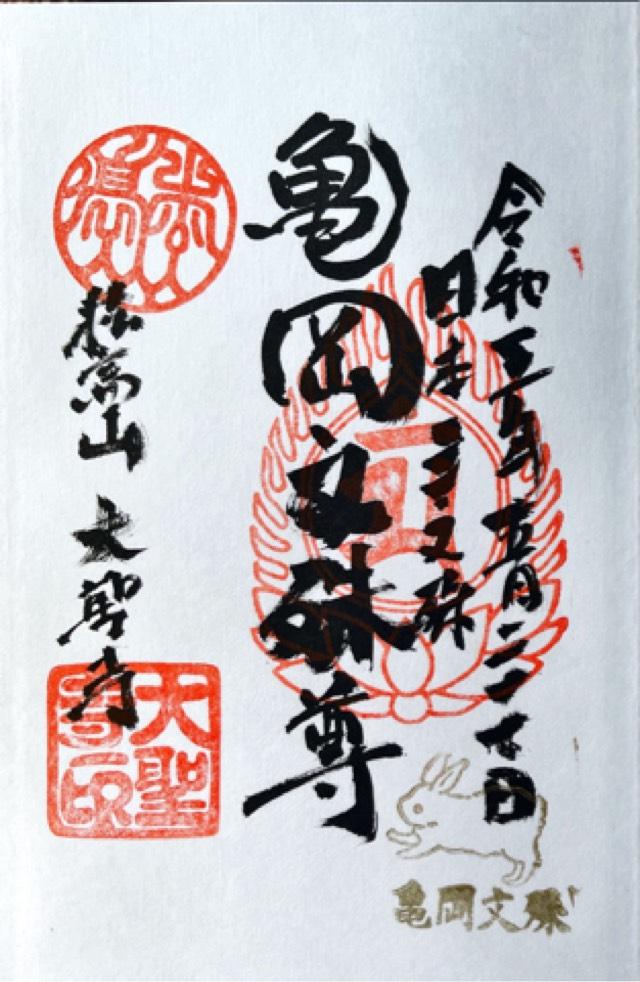 令和五年五月二十七日
日本三文殊
亀岡文殊尊
松高山 大聖寺
大聖
寺印
亀岡文殊